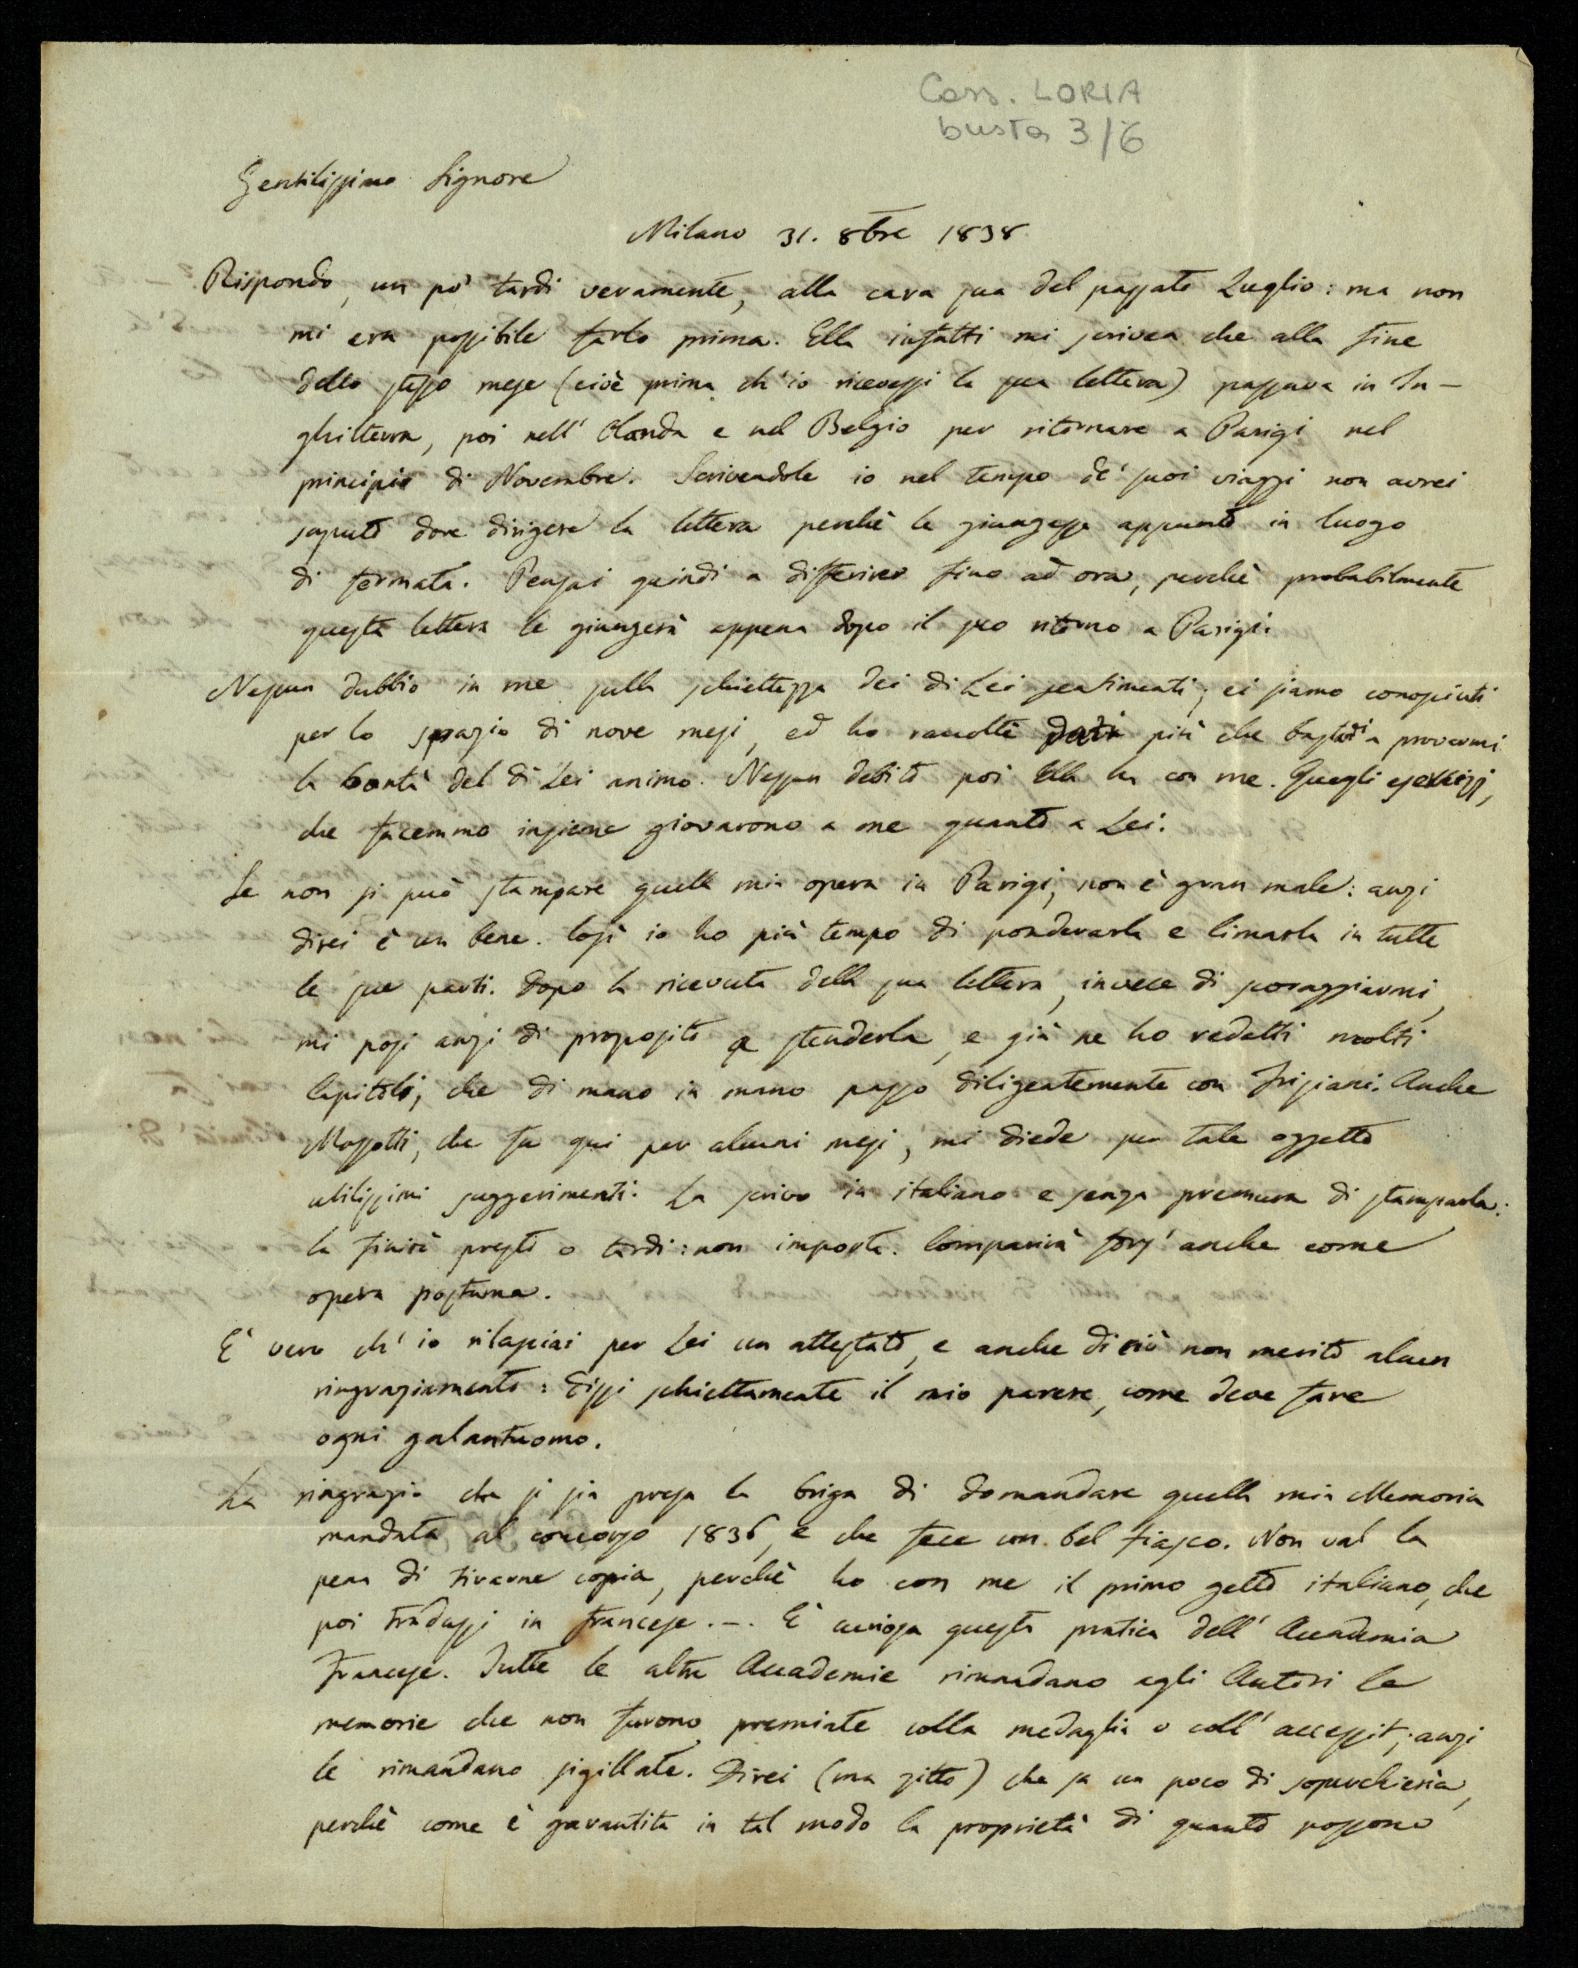 Cass. LORIA
busta 3/6
Gentilissimo Signore
Milano 31. 8bre 1838
Rispondo, un po' tardi veramente, alla cara sua del passato Luglio: ma non
mi era possibile farlo prima. Ella infatti mi scrivea che alla fine
dello stesso mese (cioè prima ch'io ricevessi la sua lettera) passava in In-
ghilterra, poi nell' Olanda e nel Belgio per ritornare a Parigi nel
principio di Novembre. Scrivendole io nel tempo de' suoi viaggi non avrei
saputo dove dirigere la lettera perchè le giungesse appunto in luogo
di fermata. Pensai quindi a differire fino ad ora, perchè probabilmente
questa lettera le giungerà appena dopo il suo ritorno a Parigi.
Nessun dubbio in me sulla schiettezza dei di Lei sentimenti; ci siamo conosciuti
per lo spazio di nove mesi, ed ho raccolti dati più che bastanti a provarmi
la bontà del di Lei animo. Nessun debito poi Ella ha con me. Quegli esercizj,
che facemmo insieme giovarono a me quanto a Lei.
Se non si può stampare quella mia opera in Parigi, non è gran male: anzi
direi è un bene. Così io ho più tempo di ponderarla e limarla in tutte
le sue parti. Dopo la ricevuta della sua lettera, invece di scoraggiarmi,
mi posi anzi di proposito a stenderla, e già ne ho redatti molti
Capitoli, che di mano in mano passo diligentemente con Frisiani. Anche
Mossotti, che fu qui per alcuni mesi, mi diede per tale oggetto
utilissimi suggerimenti. La scrivo in italiano e senza premura di stamparla:
la finirò presto o tardi: non importa. Comparirà fors' anche come
opera postuma.
E' vero ch' io rilasciai per Lei un attestato, e anche di ciò non merito alcun
ringraziamento: dissi schiettamente il mio parere, come deve fare
ogni galantuomo.
La ringrazio che si sia presa la briga di domandare quella mia Memoria
mandata al concorso 1836, e che fece un bel fiasco. Non val la
pena di tirarne copia, perchè ho con me il primo getto italiano, che
poi tradussi in francese. –. E' curiosa questa pratica dell' Accademia
Francese. Tutte le altre Accademie rimandano agli Autori le
memorie che non furono premiate colla medaglia o coll' accessit; anzi
le rimandano sigillate. Direi (ma zitto) che sa un poco di soperchieria,
perchè come è garantita in tal modo la proprietà di quanto possono